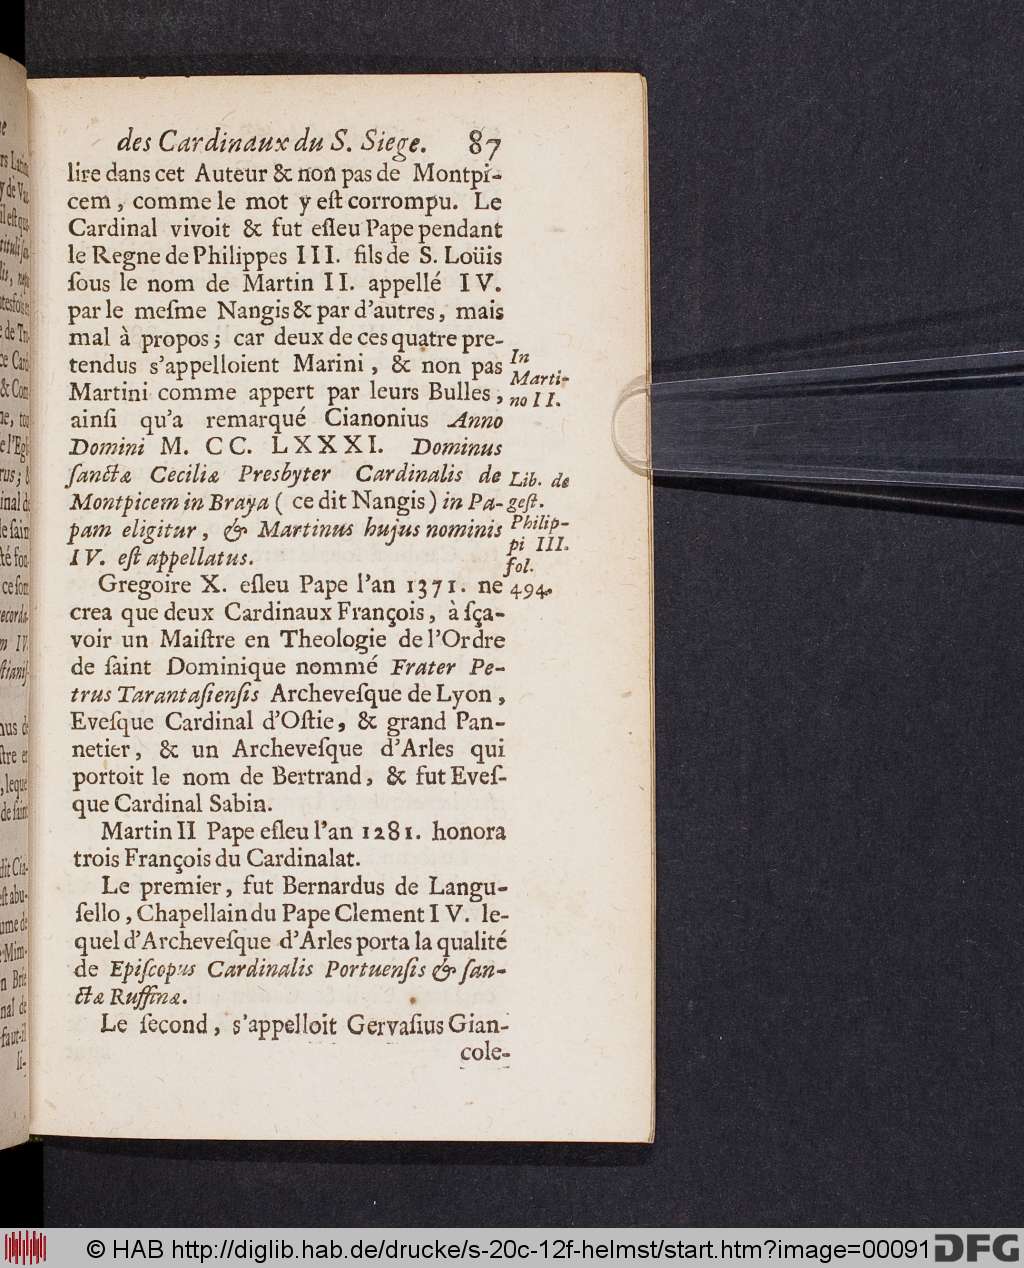 des Cardinaux du S. Siege. 87
lire dans cet Auteur & non pas de Montpi-
cem, comme le mot y eſt corrompu. Le
Cardinal vivoit & fut eſleu Pape pendant
le Regne de Philippes III. fils de S. Loüis
ſous le nom de Martin II. appellé IV.
par le meſme Nangis & par d'autres, mais
mal à propos; car deux de ces quatre pre-
tendus s'appelloient Marini, & non pas
Martini comme appert par leurs Bulles,
ainſi qu'a remarqué Cianonius Anno
Domini M. CC. LXXXI. Dominus
ſanctæ Ceciliæ Presbyter Cardinalis de
Montpicem in Braya (ce dit Nangis) in Pa-
pam eligitur, & Martinus hujus nominis
IV. eſt appellatus.
In
Marti-
no II.
Lib. de
geſt.
Philip-
pi III.
fol.
494.
Gregoire X. eſleu Pape l'an 1371. ne
crea que deux Cardinaux François, à ſça-
voir un Maiſtre en Theologie de l'Ordre
de ſaint Dominique nommé Frater Pe-
trus Tarantaſienſis Archeveſque de Lyon,
Eveſque Cardinal d'Oſtie, & grand Pan-
netier, & un Archeveſque d'Arles qui
portoit le nom de Bertrand, & fut Eveſ-
que Cardinal Sabin.
Martin II Pape eſleu l'an 1281. honora
trois François du Cardinalat.
Le premier, fut Bernardus de Langu-
ſello, Chapellain du Pape Clement IV. le-
quel d'Archeveſque d'Arles porta la qualité
de Epiſcopus Cardinalis Portuenſis & ſan-
ctæ Ruffinæ.
Le ſecond, s'appelloit Gervaſius Gian-
cole-
© HAB http://diglib.hab.de/drucke/s-20c-12f-helmst/start.htm?image=00091
DFG